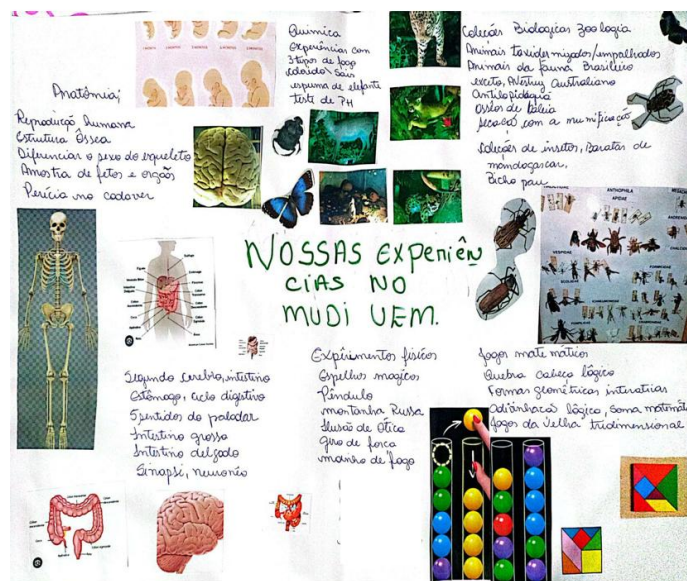 Anatômia;
Reprodução Humana
Estrutura Óssea
Diferenciar o sexo do esqueleto
Amostra de fetos e orgãos
Perícia no cadaver
Química
Experiências com
3 tipos de fogo
colorido / Sais
espuma de elefante
teste de PH
Coleções Biologicas Zoologia
Animais taxidermizados/empalhados
Animais da fauna Brasileira
exceto, Avestruz Australiano
Ossos de baleia
secação com a mumificação
Coleções de insetos, Baratas de
madagascar,
Bicho pau
ANTHOPHILA
APIDAE
VESPIDAE
NOSSAS EXPERIÊN
CIAS NO
MUDI UEM.
Segundo cerebro, intestino
Estômago, ciclo digestivo
5 sentidos do paladar
Intestino grosso
Intestino delgado
Sinapse, neuronio
Expérimentos físicos
Espelhos magicos
Pêndulo
montanha Russa
Ilusão de Ótica
Giro de força
moinho de fogo
Jogos matemáticos
Quebra cabeça lógico
Formas geométricas interativas
Adivinhaca lógico, soma matemát
Jogos da velha tridimensional